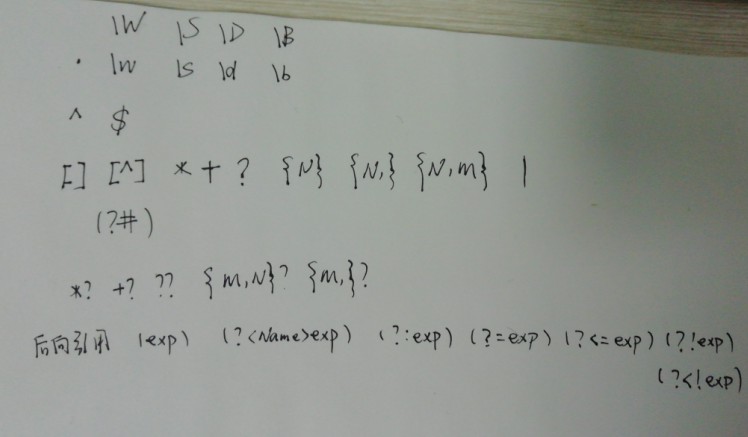 \W \S \D \B
. \w \s \d \b
^ $
[] [^] * + ? {N} {N,} {N,m} |
(?#)
*? +? ?? {m,N}? {m,}?
后向引用 (exp) (?<Name>exp) (?:exp) (?=exp) (?<=exp) (?!exp)
(?<!exp)